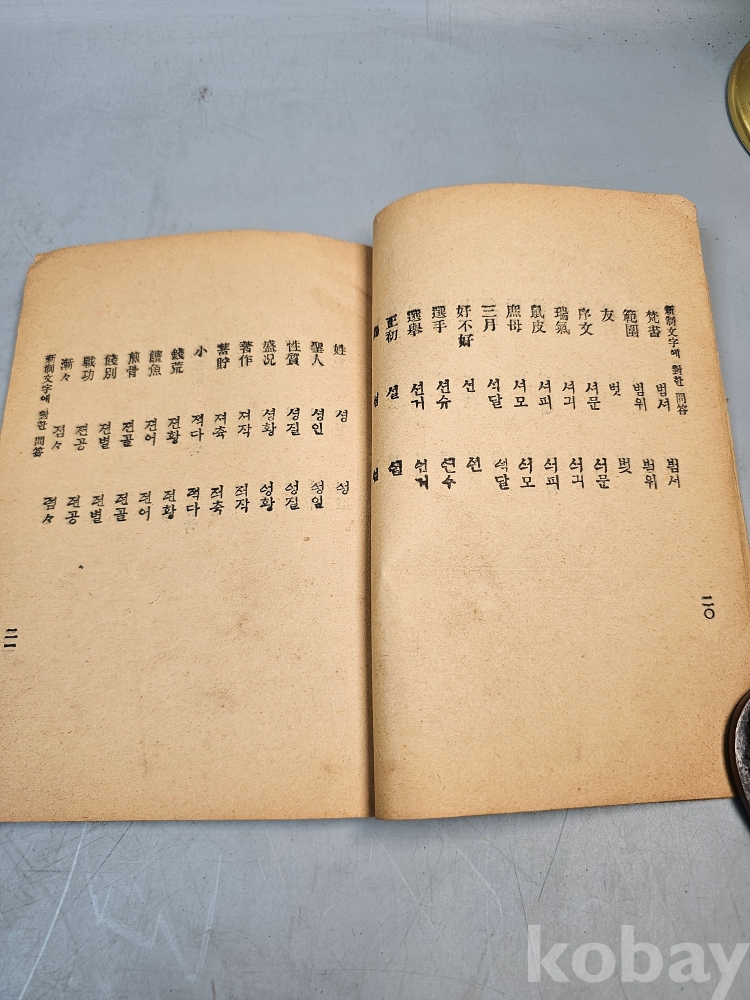 新制文字에 對한 問答
梵書 범셔 범서
範圍 범위 범위
友 벗 벗
序文 셔문 서문
瑞氣 셔긔 서긔
鼠皮 셔피 서피
庶母 셔모 서모
三月 석달 석달
好不好 선 선
選手 션슈 선수
選擧 션거 선거
正初 셜 설
二〇
姓 셩 성
聖人 셩인
性質 셩질 성질
盛況 셩황 성황
著作 져작 저작
蓄貯 져축 저축
小 젹다 적다
錢荒 젼황 전황
饘魚 젼어 전어
煎骨 젼골 전골
餞別 젼별 전별
戰功 젼공 전공
漸々 졈々 점々
新制文字에 對한 問答
二一
kobay